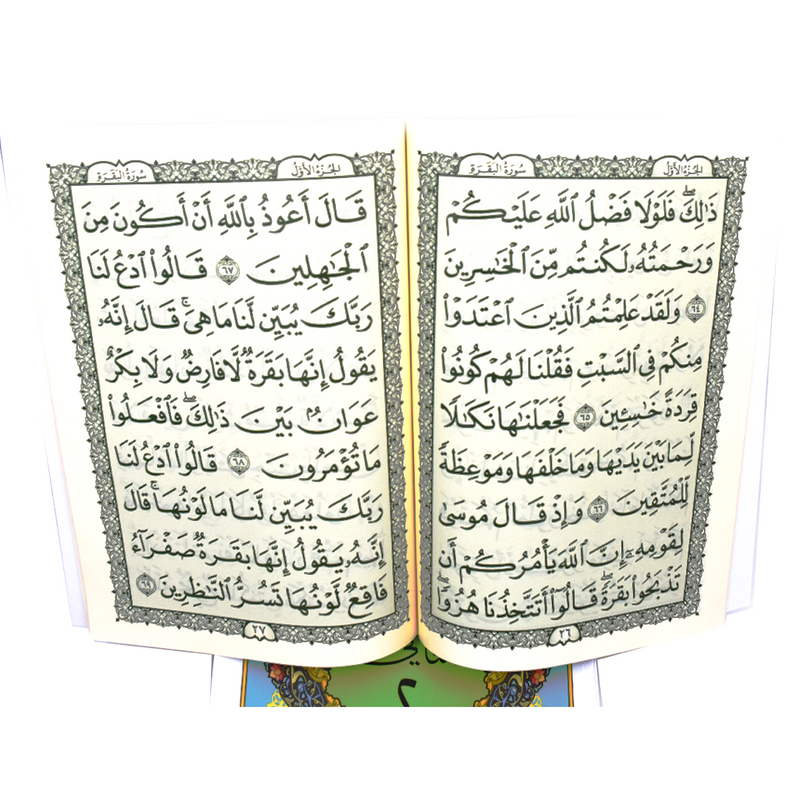 الجزء الأول
سورة البقرة
ذَٰلِكَۖ فَلَوْلَا فَضْلُ ٱللَّهِ عَلَيْكُمْ
وَرَحْمَتُهُۥ لَكُنتُم مِّنَ ٱلْخَٰسِرِينَ
٦٤ وَلَقَدْ عَلِمْتُمُ ٱلَّذِينَ ٱعْتَدَوْا۟
مِنكُمْ فِى ٱلسَّبْتِ فَقُلْنَا لَهُمْ كُونُوا۟
قِرَدَةً خَٰسِـِٔينَ ٦٥ فَجَعَلْنَٰهَا نَكَٰلًا
لِّمَا بَيْنَ يَدَيْهَا وَمَا خَلْفَهَا وَمَوْعِظَةً
لِّلْمُتَّقِينَ ٦٦ وَإِذْ قَالَ مُوسَىٰ
لِقَوْمِهِۦٓ إِنَّ ٱللَّهَ يَأْمُرُكُمْ أَن
تَذْبَحُوا۟ بَقَرَةًۖ قَالُوٓا۟ أَتَتَّخِذُنَا هُزُوًاۖ
٢٦
الجزء الأول
سورة البقرة
قَالَ أَعُوذُ بِٱللَّهِ أَنْ أَكُونَ مِنَ
ٱلْجَٰهِلِينَ ٦٧ قَالُوا۟ ٱدْعُ لَنَا
رَبَّكَ يُبَيِّن لَّنَا مَا هِىَۚ قَالَ إِنَّهُۥ
يَقُولُ إِنَّهَا بَقَرَةٌ لَّا فَارِضٌ وَلَا بِكْرٌ
عَوَانٌۢ بَيْنَ ذَٰلِكَۖ فَٱفْعَلُوا۟
مَا تُؤْمَرُونَ ٦٨ قَالُوا۟ ٱدْعُ لَنَا
رَبَّكَ يُبَيِّن لَّنَا مَا لَوْنُهَاۚ قَالَ
إِنَّهُۥ يَقُولُ إِنَّهَا بَقَرَةٌ صَفْرَآءُ
فَاقِعٌ لَّوْنُهَا تَسُرُّ ٱلنَّٰظِرِينَ ٦٩
٢٧